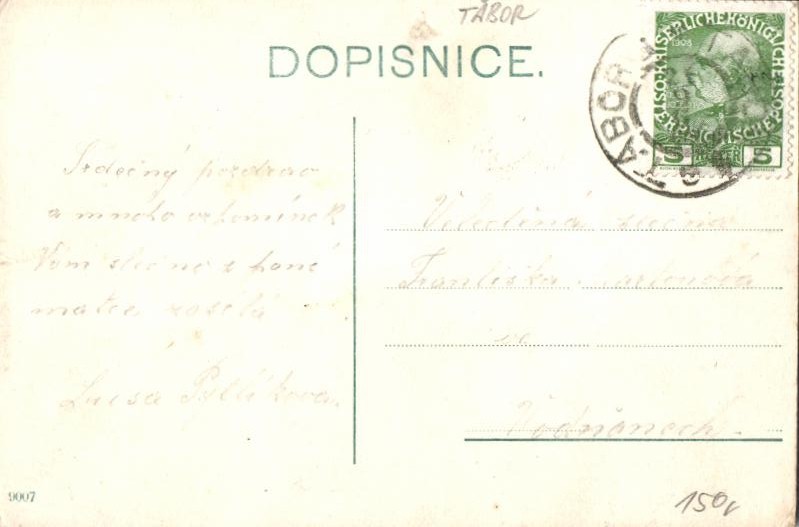 TÁBOR
DOPISNICE.
TÁBOR
1908
KAISERLICHE KÖNIGLICHE ÖSTERREICHISCHE POST
5 HELLER 5
Srdečný pozdrav
a mnoho vzpomínek
Vám slečno z
matce zasílá
Luisa
Velectěná slečna
Františka
ve
Vodňanech.
9007
150,